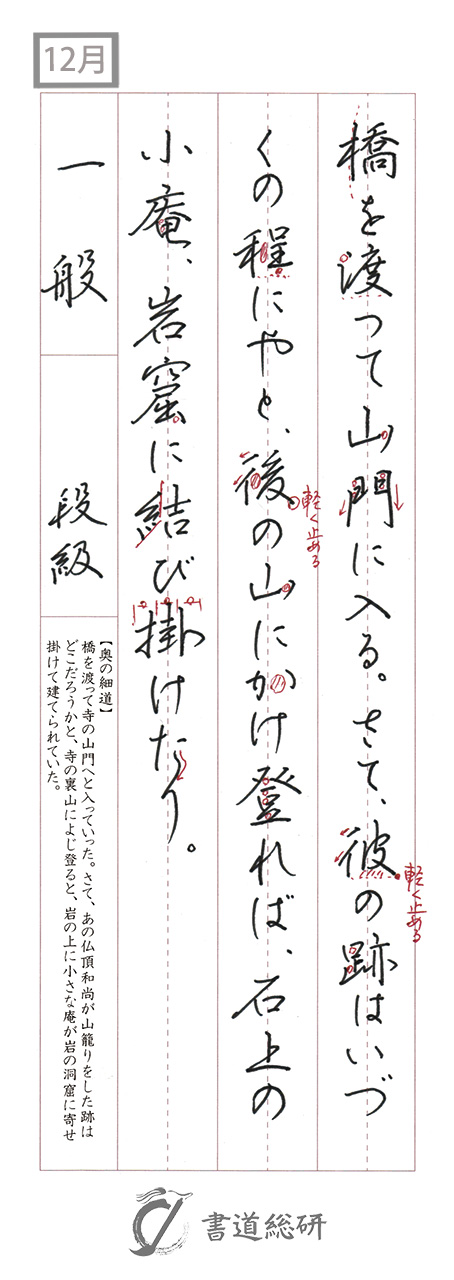 12月
橋を渡って山門に入る。さて、彼の跡はいづ
くの程にやと、後の山にかけ登れば、石上の
小庵、岩窟に結び掛けたり。
軽く止める
軽く止める
一般
段級
【奥の細道】
橋を渡って寺の山門へと入っていった。さて、あの仏頂和尚が山籠りをした跡は
どこだろうかと、寺の裏山によじ登ると、岩の上に小さな庵が岩の洞窟に寄せ
掛けて建てられていた。
書道総研